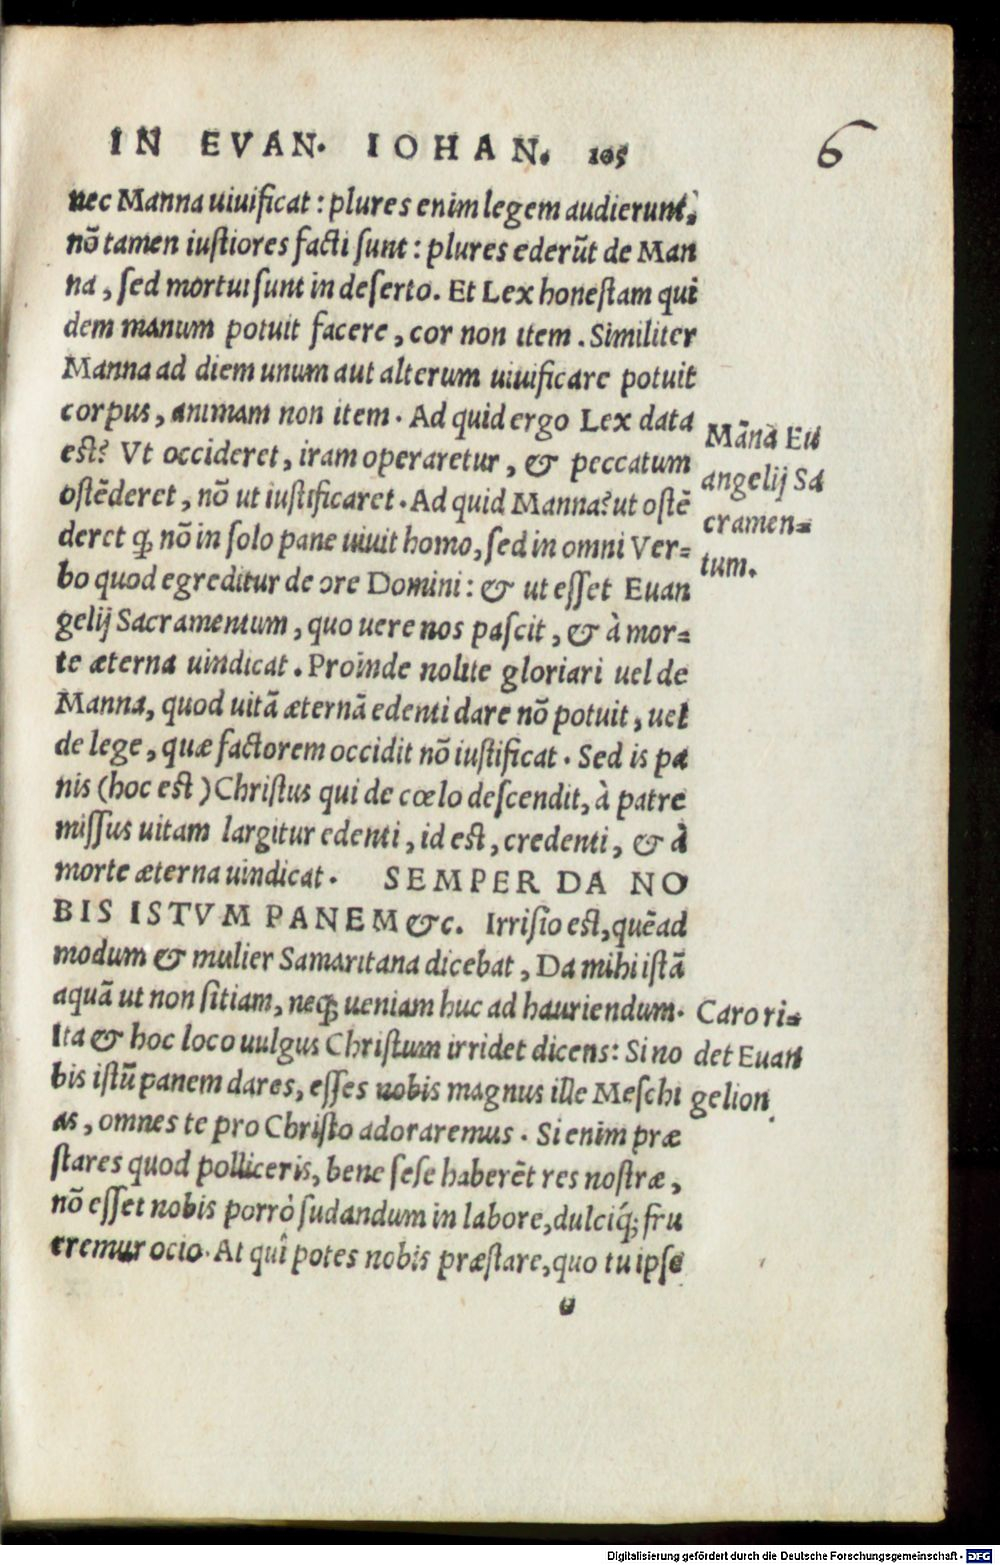 IN EVAN. IOHAN. 105
6
nec Manna uiuificat : plures enim legem audierunt,
nō tamen iustiores facti sunt : plures ederūt de Man
na , sed mortui sunt in deserto. Et Lex honestam qui
dem manum potuit facere , cor non item . Similiter
Manna ad diem unum aut alterum uiuificare potuit
corpus , animam non item . Ad quid ergo Lex data
est? Vt occideret , iram operaretur , & peccatum
ostēderet , nō ut iustificaret . Ad quid Manna? ut ostē
deret ꝙ nō in solo pane uiuit homo, sed in omni Ver=
bo quod egreditur de ore Domini : & ut esset Euan
gelij Sacramentum , quo uere nos pascit , & à mor=
te æterna uindicat . Proinde nolite gloriari uel de
Manna, quod uitā æternā edenti dare nō potuit , uel
de lege , quæ factorem occidit nō iustificat . Sed is pa
nis (hoc est) Christus qui de cœlo descendit, à patre
missus uitam largitur edenti , id est , credenti , & à
morte æterna uindicat . SEMPER DA NO
BIS ISTVM PANEM &c. Irrisio est, quēad
modum & mulier Samaritana dicebat , Da mihi istā
aquā ut non sitiam, neqꝫ ueniam huc ad hauriendum.
Ita & hoc loco uulgus Christum irridet dicens: Si no
bis istū panem dares, esses nobis magnus ille Meschi
as , omnes te pro Christo adoraremus . Si enim præ
stares quod polliceris, bene sese haberēt res nostræ ,
nō esset nobis porrò sudandum in labore, dulciqꝫ fru
eremur ocio. At quî potes nobis præstare, quo tu ipse
Māna Eu
angelij Sa
cramen=
tum.
Caro ri=
det Euan
gelion
Digitalisierung gefördert durch die Deutsche Forschungsgemeinschaft - DFG